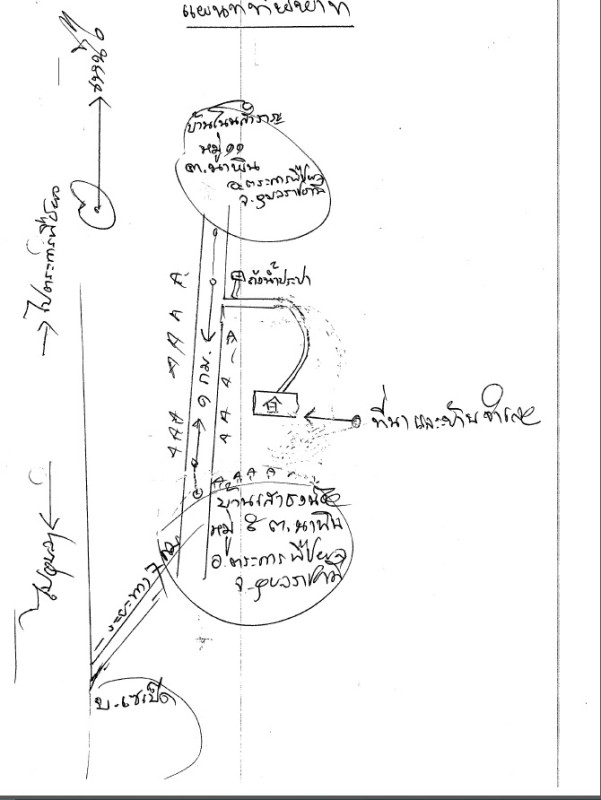 บ้านโนนสำราญ
หมู่ ๑๑
ต.นาพิน
อ.ตระการพืชผล
จ.อุบลราชธานี
ไปตระการพืชผล
ถังน้ำประปา
๑ กม.
ที่นาและบ้าน
หมู่ ๕ ต.นาพิน
อ.ตระการพืชผล
จ.อุบลราชธานี
ไปอุบลฯ
ระยะทาง
บ.เซเป็ด